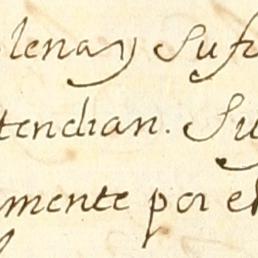 lena y Sufi
tendian. Su
mente por el